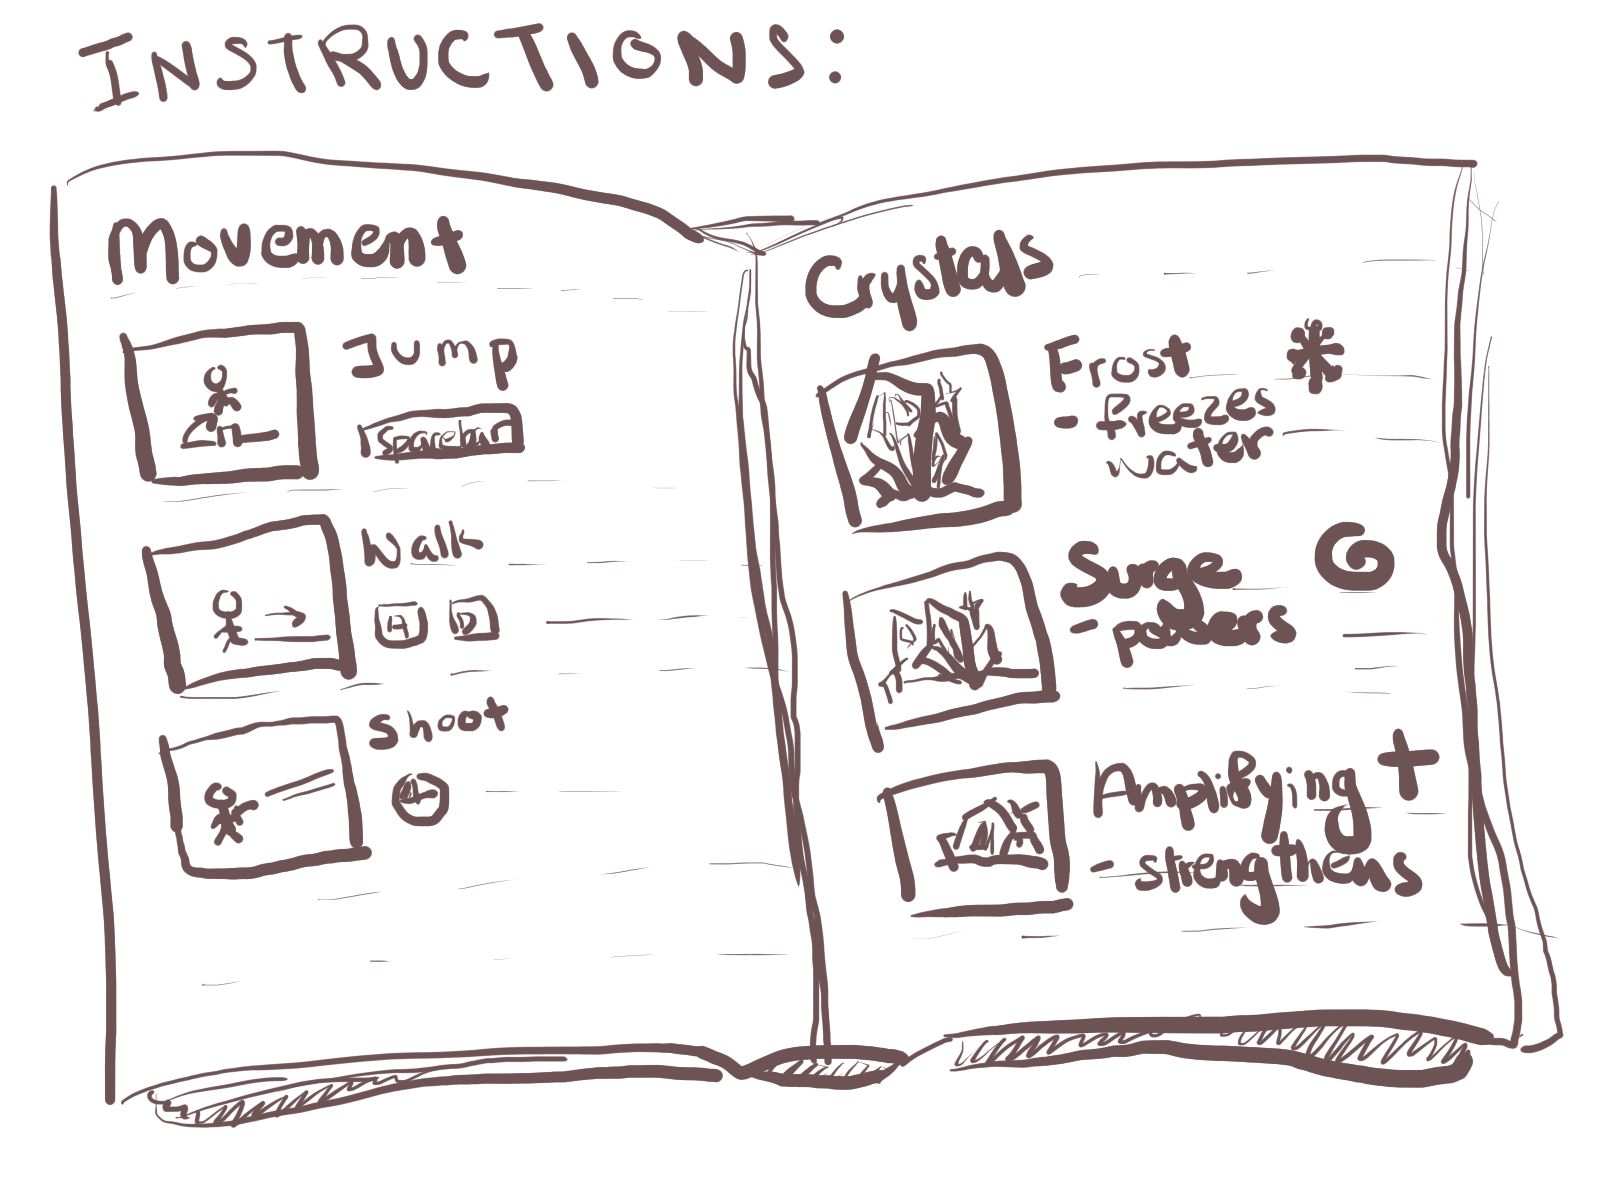 INSTRUCTIONS:
Movement
Jump
Spacebar
Walk
A D
Shoot
Crystals
Frost
- freezes
water
Surge
- powers
Amplifying +
- strengthens